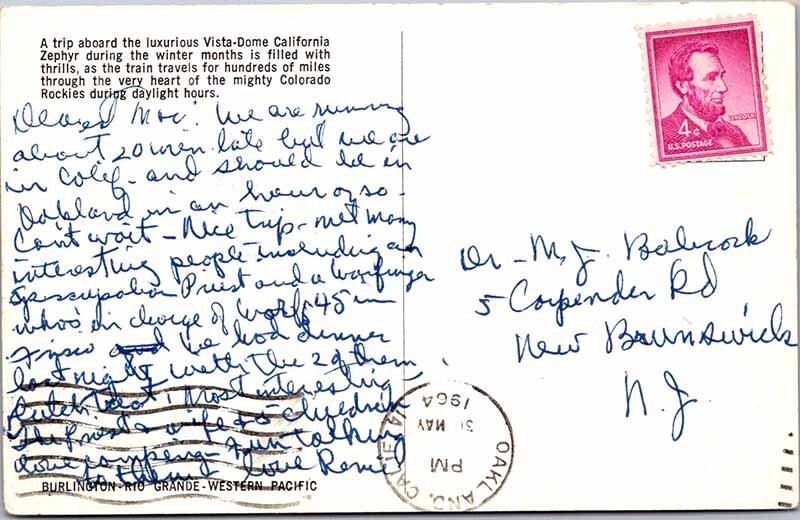 A trip aboard the luxurious Vista-Dome California
Zephyr during the winter months is filled with
thrills, as the train travels for hundreds of miles
through the very heart of the mighty Colorado
Rockies during daylight hours.
Dearest Mac: We are running
about 20 min late but we are
in Calif. and should be in
Oakland in an hour or so -
Can't wait - Nice trip - met many
interesting people including an
Episcopalian Priest and a Warfinger
who's in charge of Warf 45 in
Frisco We had dinner
last night with the 2 of them
Dutch treat. Most interesting
The Priest & wife & 5 children
love camping - Fun talking
to them Love Renie
BURLINGTON-RIO GRANDE-WESTERN PACIFIC
LINCOLN
4¢
U.S. POSTAGE
Dr - M. J. Babcock
5 Carpender Rd
New Brunswick
N. J.
OAKLAND, CALIFORNIA
PM
31 MAY
1964